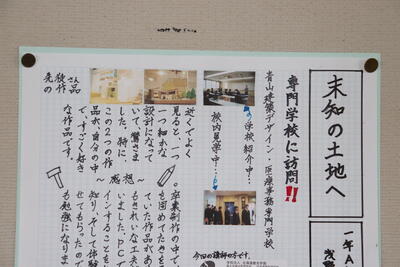 未知の土地へ
一年A
浅野
専門学校に訪問!!
青山建築デザイン・医療事務専門学校
学校紹介中…
校内見学中…
近くでよく
見ると、一つ
一つ細かな
設計になって
いて、驚きま
した。特に、
この2つの作
品が、自分の中
で、すごく好き
な作品です。
〜感想〜
卒業制作の中で
を固めてたきを
ていた作品があ
もきれいな工夫
いました。PCで
インすることを
知り、そして体験
せてもらったので
も勉強になりま
今回の講師の方です。